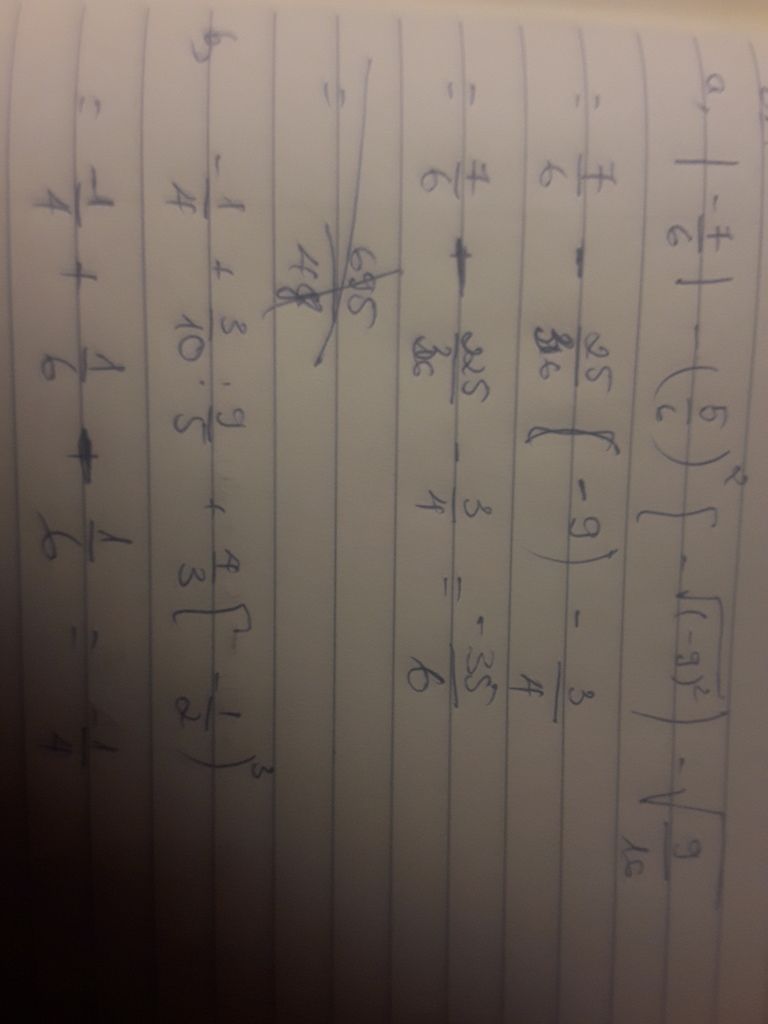 a, | -7/6 | - (5/6)² ( -√(-9)² ) - √9/16
= 7/6 - 25/36 ( -9) - 3/4
= 7/6 + 225/36 - 3/4 = -35/6
=
b, -1/4 + 3/10 : 9/5 + 4/3 ( -1/2 )³
= -1/4 + 1/6 + 1/6 = 1/4